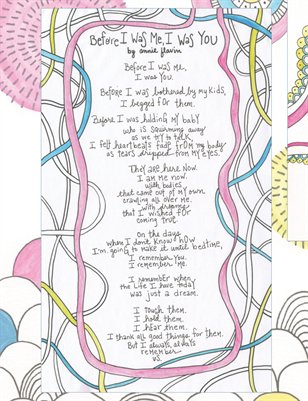 Before I Was Me, I Was You
by annie flavin
Before I was me,
I was you.
Before I was bothered by my kids,
I begged for them.
Before I was holding my baby
who is squirming away
as we try to talk,
I felt heartbeats fade from my body
as tears dripped from my eyes.
They are here now.
I am me now.
with bodies
that came out of my own
crawling all over me.
with dreams
that I wished for
coming true.
On the days
when I don't know how
I'm going to make it until bedtime,
I remember you.
I remember me.
I remember when
the life I have today
was just a dream.
I touch them.
I hold them.
I hear them.
I thank all good things for them.
But I always, always
remember
us.